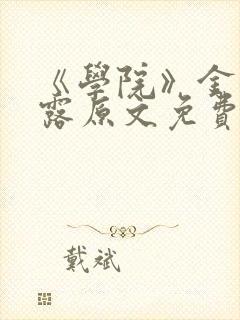 《學院》金
露原文免費
戴斌